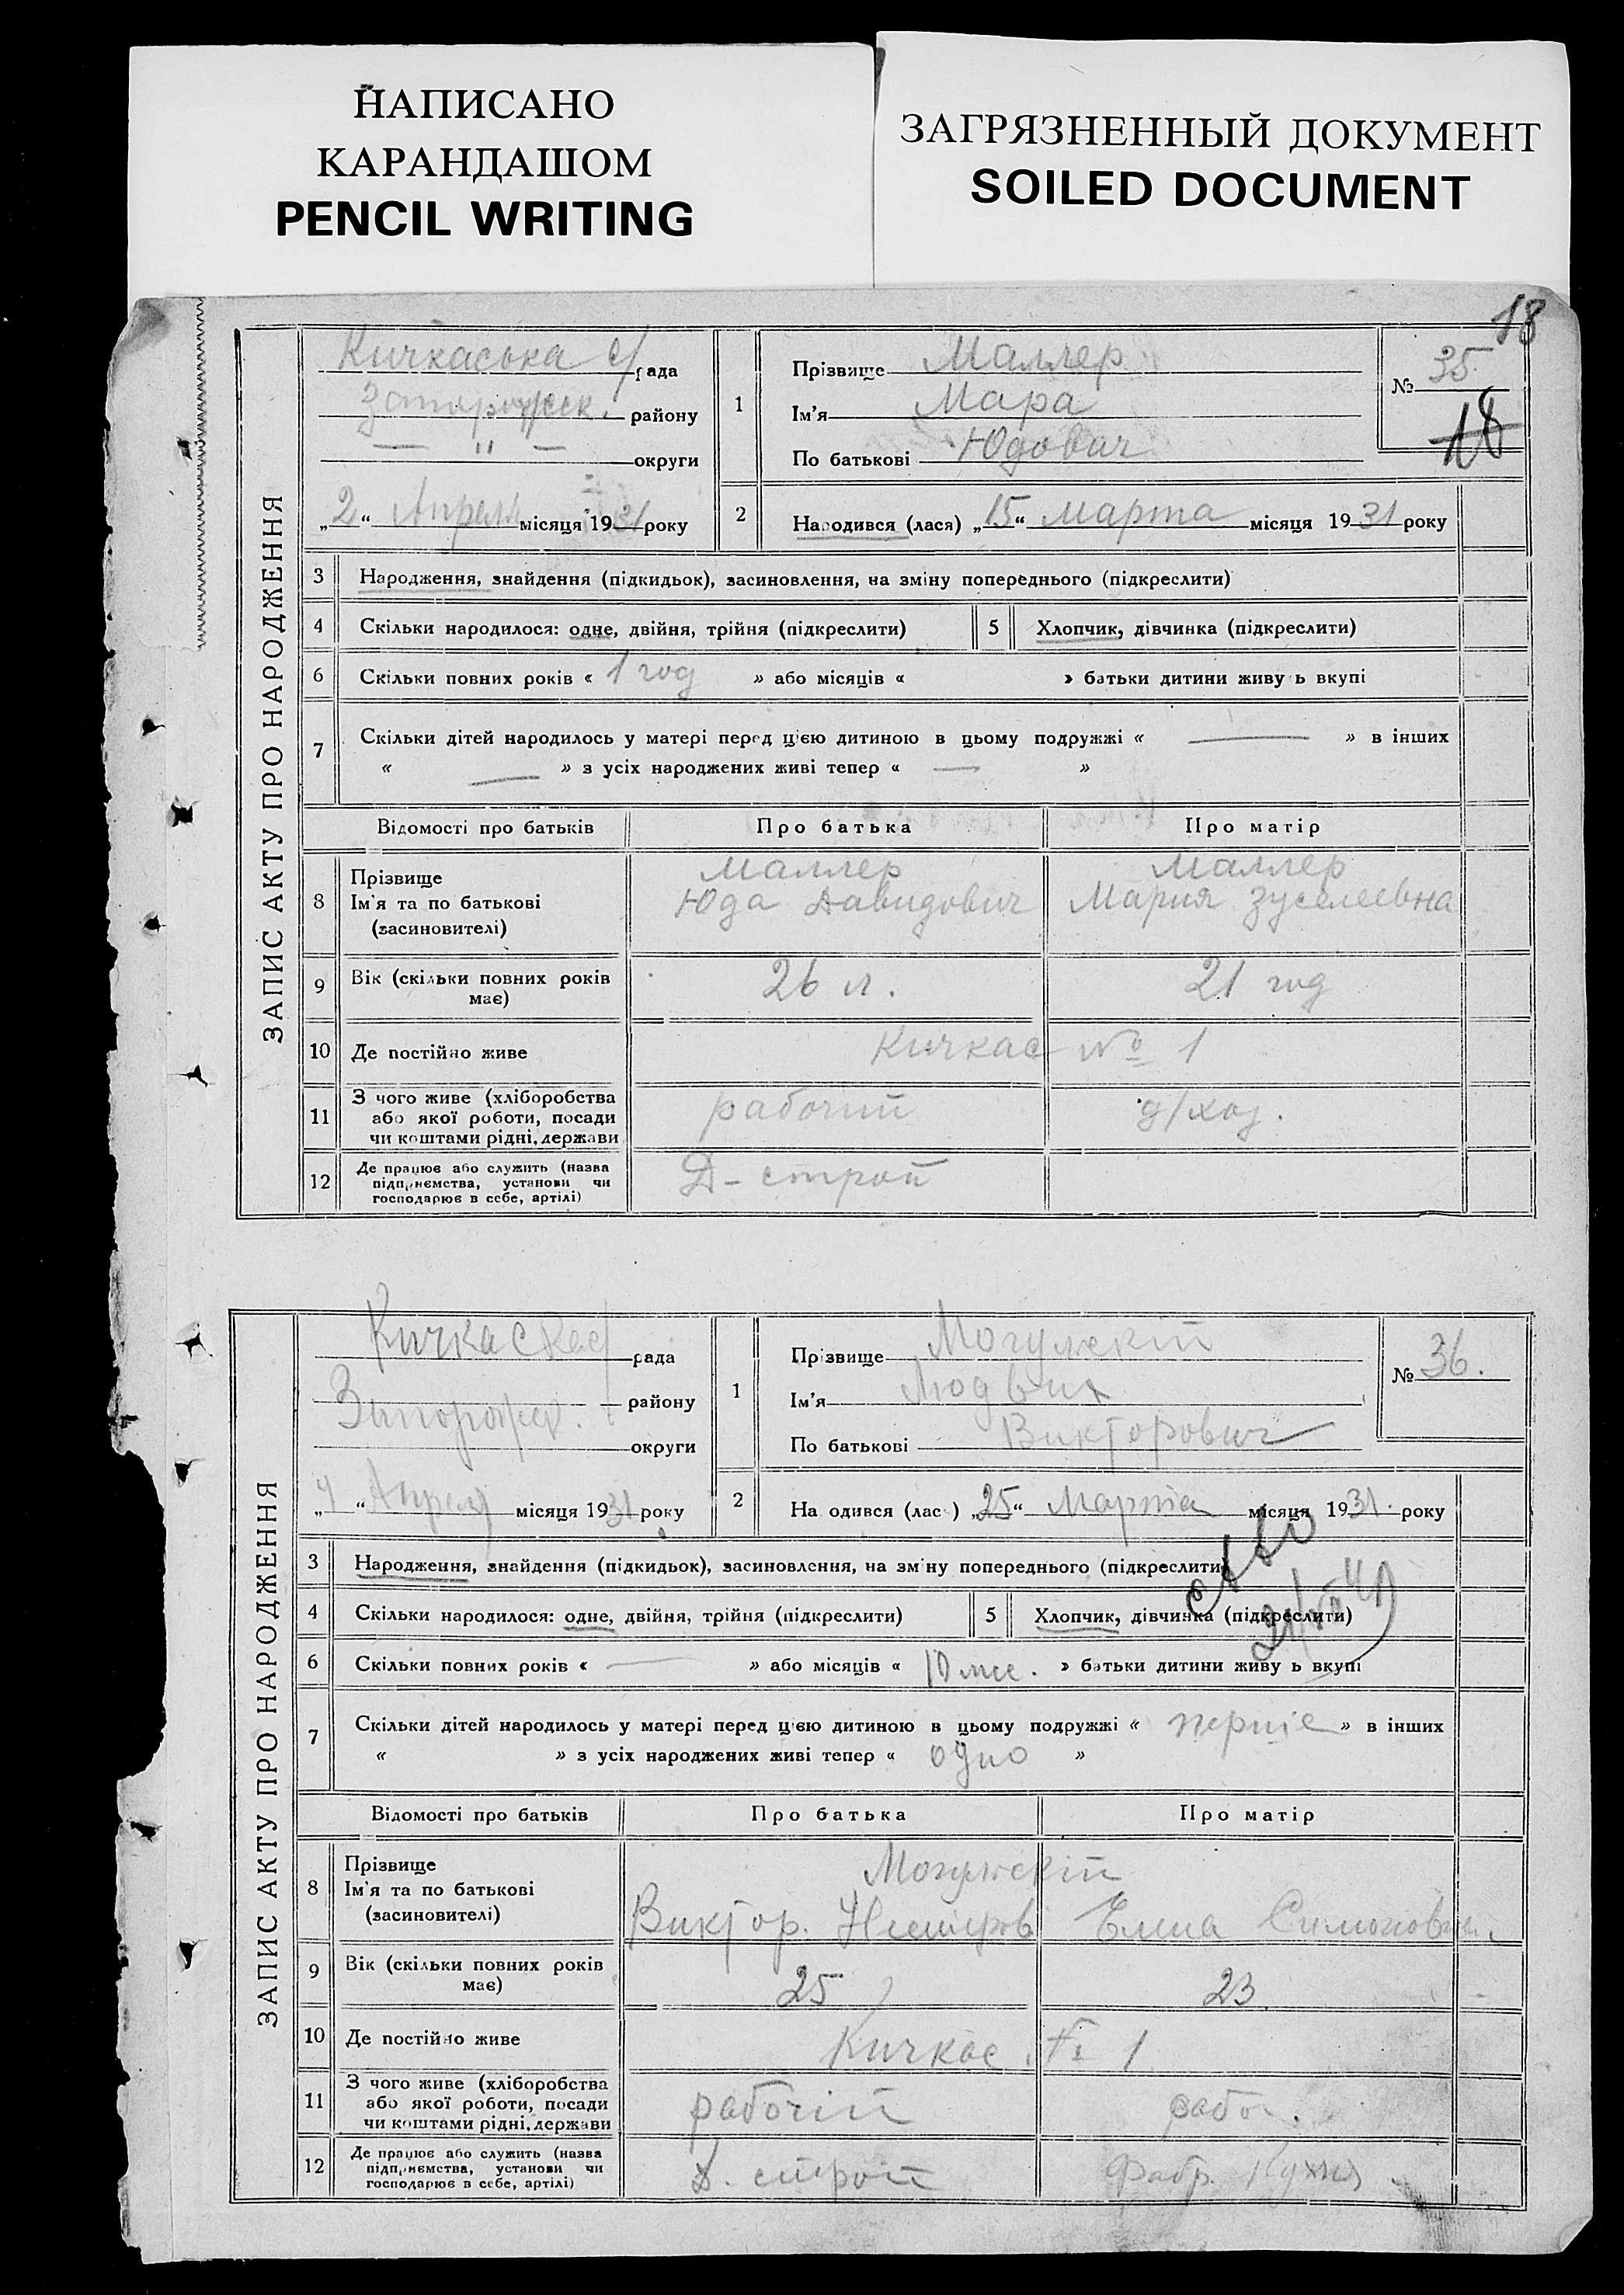 НАПИСАНО
КАРАНДАШОМ
PENCIL WRITING
ЗАГРЯЗНЕННЫЙ ДОКУМЕНТ
SOILED DOCUMENT
18
ЗАПИС АКТУ ПРО НАРОДЖЕННЯ
Кичкаська с/рада
Запорожск. району
— " — округи
„2“ Апреля місяця 1931 року
1
Прізвище Маллер
Ім'я Мара
По батькові Юдович
№ 35
18
2 Народився (лася) „15“ марта місяця 1931 року
3 Народження, знайдення (підкидьок), засиновлення, на зміну попереднього (підкреслити)
4 Скільки народилося: одне, двійня, трійня (підкреслити) 5 Хлопчик, дівчинка (підкреслити)
6 Скільки повних років « 1 год » або місяців « » батьки дитини живу ь вкупі
7 Скільки дітей народилось у матері перед цією дитиною в цьому подружжі « — » в інших
« — » з усіх народжених живі тепер « — »
Відомості про батьків Про батька Про матір
8 Прізвище Маллер Маллер
Ім'я та по батькові Юда Давидович Мария Зуселевна
(засиновителі)
9 Вік (скільки повних років має) 26 л. 21 год
10 Де постійно живе Кичкас № 1
11 З чого живе (хліборобства
або якої роботи, посади рабочий д/хоз.
чи коштами рідні, держави
12 Де працює або служить (назва
підприємства, установи чи Д-строй
господарює в себе, артілі)
ЗАПИС АКТУ ПРО НАРОДЖЕННЯ
Кичкаска с/ рада
Запорожск. району
округи
„4“ Апреля місяця 1931 року
1
Прізвище
Ім'я Людвих
По батькові Викторович
№ 36.
2 На одився (лас ) „25“ Марта місяця 1931. року
3 Народження, знайдення (підкидьок), засиновлення, на зм ну попереднього (підкреслити)
4 Скільки народилося: одне, двійня, трійня (підкреслити) 5 Хлопчик, дівчинка (підкреслити)
6 Скільки повних років « — » або місяців « 10 мес. » батьки дитини живу ь вкупі
7 Скільки дітей народилось у матері перед цією дитиною в цьому подружжі « перше » в інших
« » з усіх народжених живі тепер « одно »
Відомості про батьків Про батька Про матір
8 Прізвище
Ім'я та по батькові Виктор. Елена Симоновна
(засиновителі)
9 Вік (скільки повних років має) 25 23
10 Де постійно живе Кичкас № 1
11 З чого живе (хліборобства
або якої роботи, посади рабочій рабо
чи коштами рідні, держави
12 Де працює або служить (назва
підприємства, установи чи Д. строй Фабр. Кухня
господарює в себе, артілі)